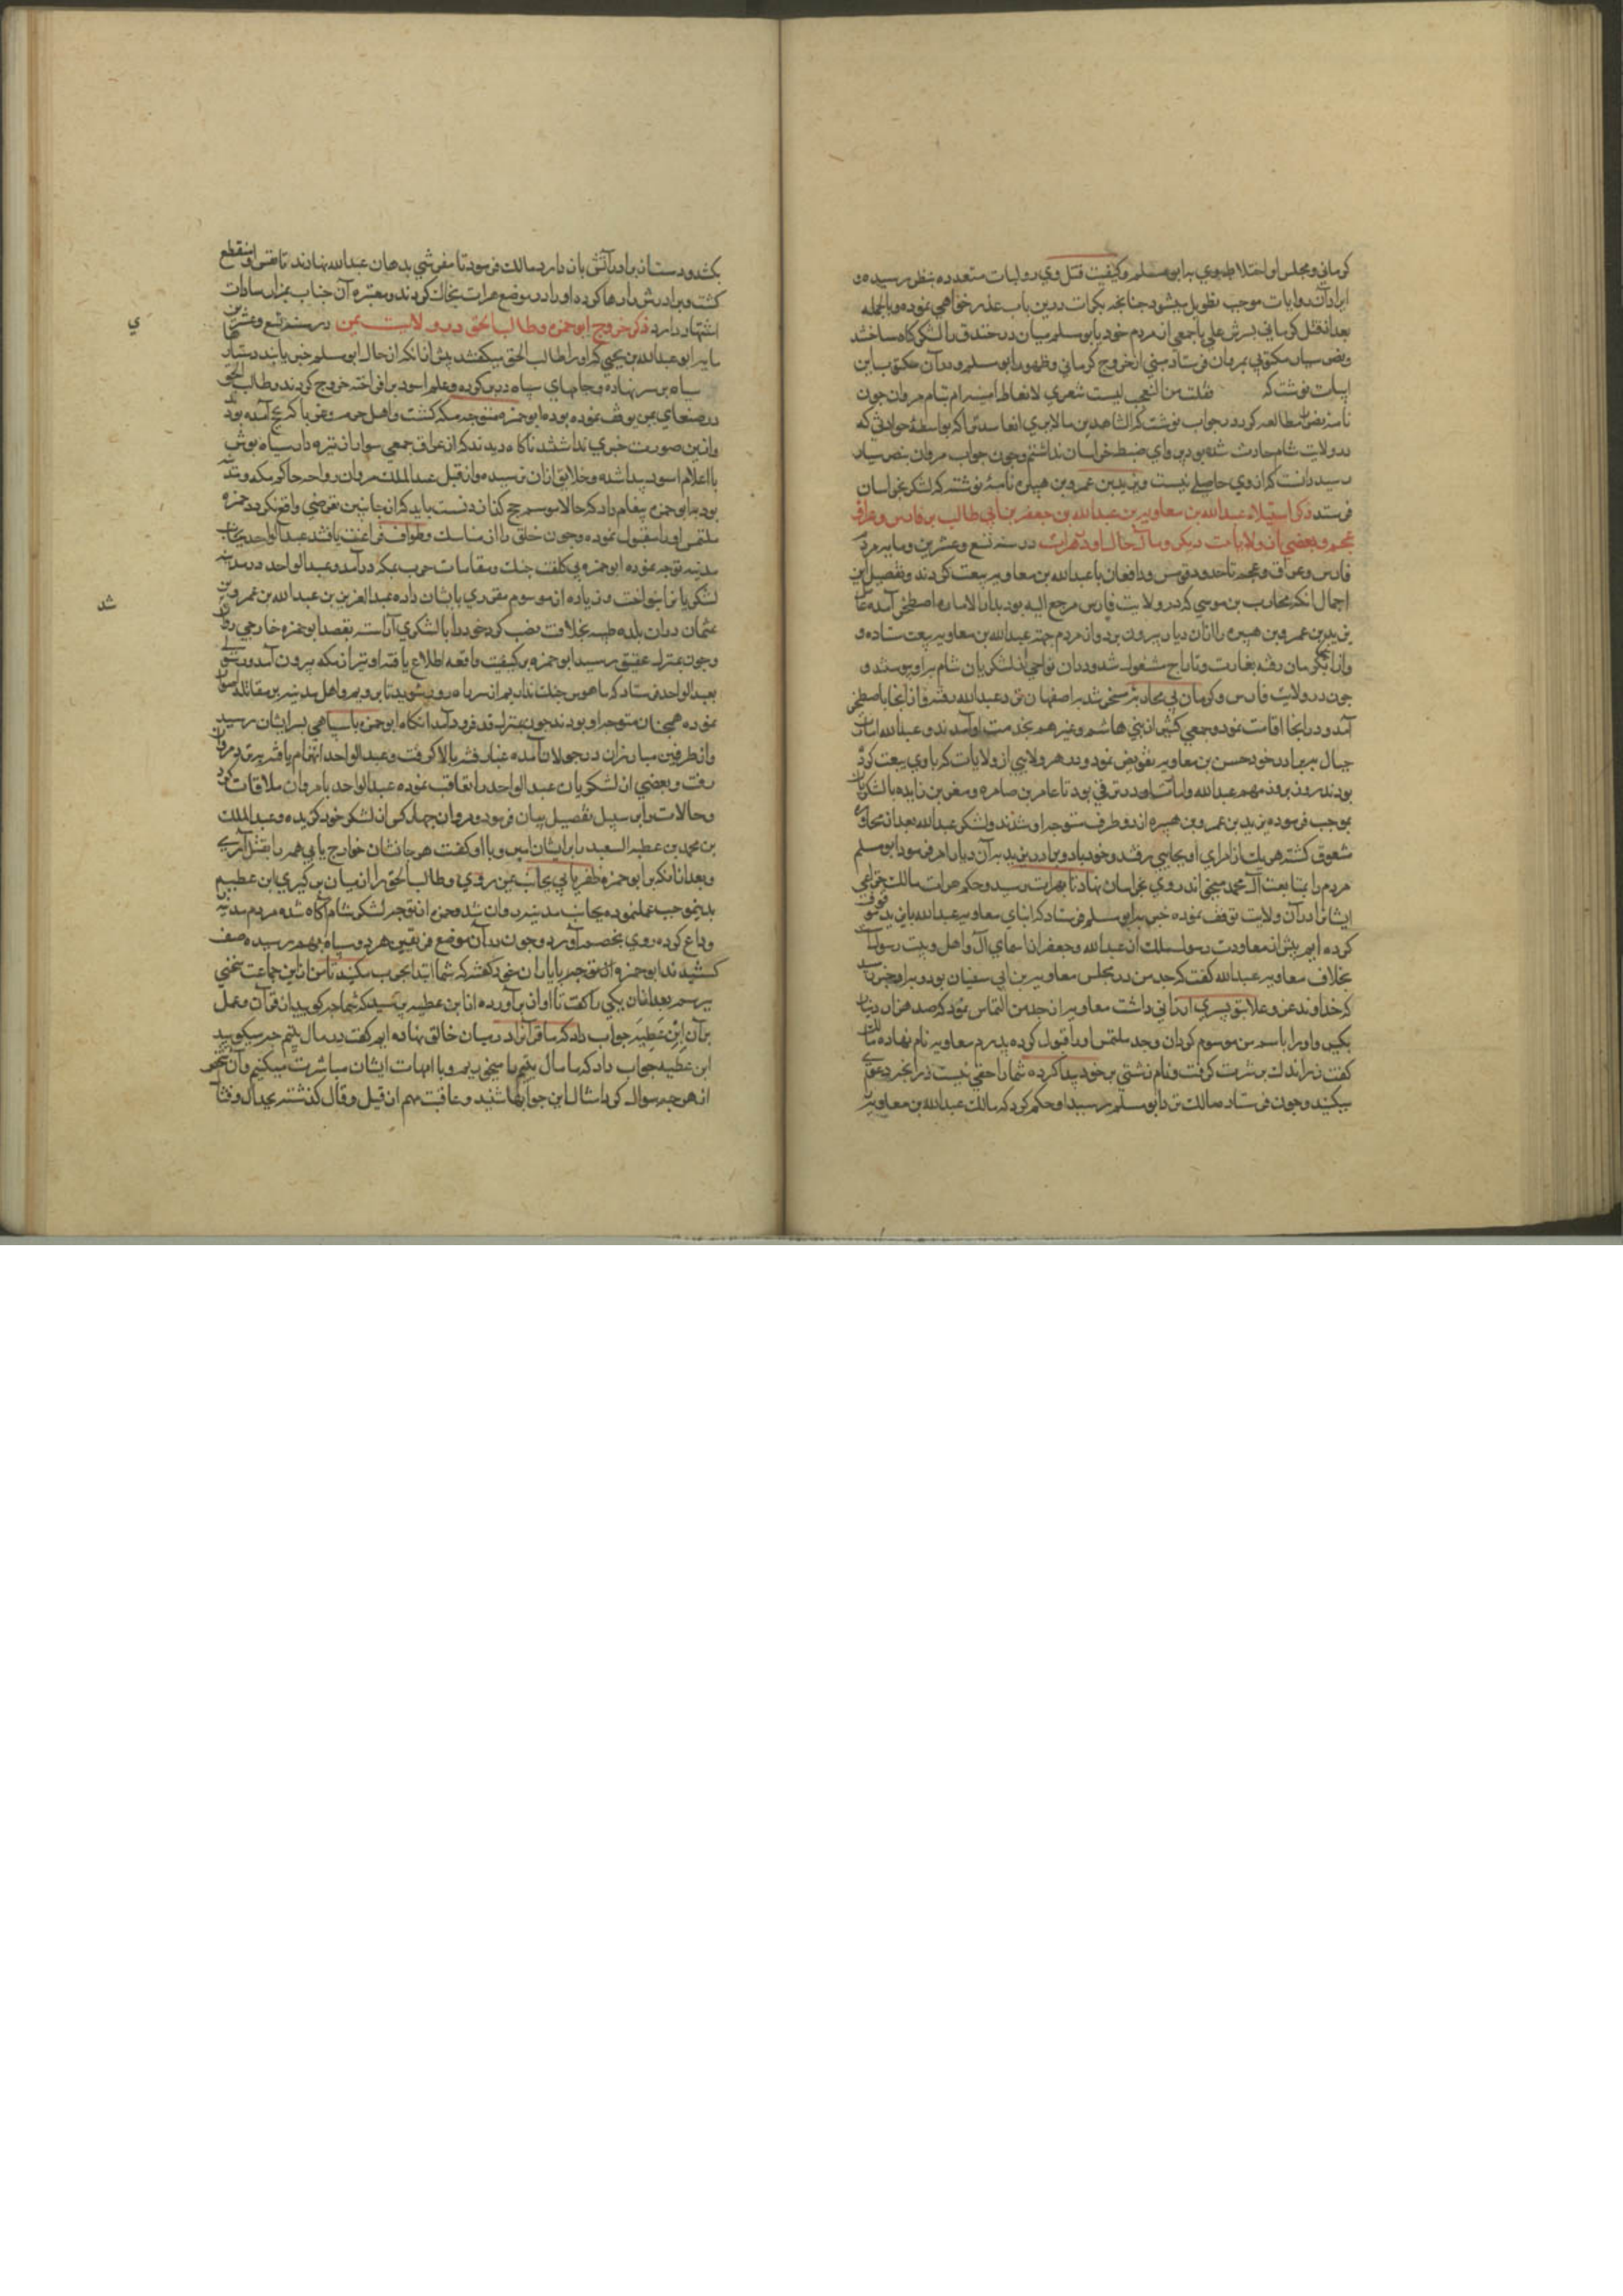 کرمانی و مجلس او اختلاط وی با ابو مسلم و کیفیت قتل وی روایات متعدده بنظر رسیده و
ایراد آن روایات موجب تطویل میشود چنانچه بکرات درین باب عذر خواهی نموده و بالجمله
بعد از قتل کرمانی پسرش علی با جمعی از مردم خود بابو مسلم در خندق لشکرکاه ساختند
و نصر سیار مکتوبی بمروان فرستاد مبنی از خروج کرمانی و ظهور ابو مسلم و در آن مکتوب این
ابیات نوشت که فقلت من التعجب لیت شعری أایقاظ امیه ام نیام مروان چون
نامه نصر مطالعه کرد در جواب نوشت که الشاهد یری ما لا یری الغایب بواسطه حوادثی که
در ولایت شام حادث شده بود پروای ضبط خراسان نداشتم و چون جواب مروان بنصر سیار
رسید دانست که از وی حاصلی نیست و یزید بن عمرو بن هبیره نامه نوشته که لشکر بخراسان
فرستد ذکر استیلاء عبدالله بن معاویه بن عبدالله بن جعفر بن ابی طالب بر فارس و عراق
عجم و بعضی از ولایات دیکر و مآل حال او در هرات در سنه تسع و عشرین و مایه مردم
فارس و عراق عجم تا حدود قومس و دامغان با عبدالله بن معاویه بیعت کردند و تفصیل این
اجمال آنکه محارب بن موسی که در ولایت فارس مرجع الیه بود بدار الاماره اصطخر آمده عامل
یزید بن عمرو بن هبیره را از آن دیار بیرون برد و از مردم جهة عبدالله بن معاویه بیعت ستاده و
و از آنجا بکرمان رفته بغارت و تاراج مشغول شد و در آن نواحی از لشکریان شام برو پیوستند و
چون در ولایت فارس و کرمان بی محاربه مسخر شد باصفهان نزد عبدالله رفته و از آنجا باصطخر
آمد و در آنجا اقامت نمود و جمعی کثیر از بنی هاشم و غیرهم بخدمت او آمدند و عبدالله امارت
جبال ببرادر خود حسن بن معاویه تفویض نمود و در هر ولایتی از ولایات که با وی بیعت کرده
بودند روز بروز مهم عبدالله در ترقی بود تا عامر بن ضباره و معن بن زایده با لشکریان
بموجب فرموده یزید بن عمرو بن هبیره از دو طرف متوجه او شدند و لشکر عبدالله بعد از محاربه
متفرق کشته هر یک از امرای او بجایی رفتند و خود با دو برادر
مردم را بمتابعت آل محمد میخواند روی بخراسان نهاد تا بهرات رسید و حکم هرات مالک خزاعی
ایشانرا در آن ولایت توقف نموده خبر بابو مسلم فرستاد که ابنای معاویه عبدالله
کرده ایم پیش از معاودت رسول مالک از عبدالله و جعفر اسمای آل و اهل و بیت رسول است
بخلاف معاویه عبدالله کفت که جد من در مجلس معاویه بن ابی سفیان بود و برو خبر رسید
که خداوند عز و علا بتو پسری ارزانی داشت معاویه از جد من التماس نمود که صد هزار دینار
بکیر و او را باسم من موسوم کردان و جد ملتمس او را قبول کرده پدرم معاویه نام نهاده مالک
کفت زر اندک برشوت کرفت و نام زشتی بر خود پیدا کرده شما را حقی نیست
میکنید و چون فرستاده مالک نزد ابو مسلم رسید او حکم کرد که مالک عبدالله بن معاویه
بکشد و دست از برادرانش باز دارد مالک فرمود تا مفرشی بدهان عبدالله نهادند تا نفس او منقطع
کشت و برادرانش را رها کرده او را در موضع هرات بخاک کردند و مقبره آن جناب بمزار سادات
اشتهار دارد ذکر خروج ابو حمزه و طالب الحق در ولایت یمن در سنه تسع و عشرین
مایه ابو عبدالله بن یحیی که او را طالب الحق میکفتند پیش از آنکه از حال ابو مسلم خبر یابند دستار
سیاه بر سر نهاده و جامهای سیاه در بر کرده و علم اسود بر افراخته خروج کردند و طالب الحق
در صنعای یمن توقف نموده بود و ابو حمزه متوجه مکه کشت و اهل حرم و غربا که بحج آمده بودند
و ازین صورت خبری نداشتند ناکاه دیدند که از عراق جمعی سواران نیزه دار سیاه پوش
با اعلام اسود پیدا شدند و خلایق از آن ترسیده و از قبل عبدالملک مروان عبدالواحد حاکم مکه و مدینه
بود بابو حمزه پیغام داد که حالا موسم حج کنانه نیست باید که از جانبین تعرضی واقع نکردد حمزه
ملتمس او را مقبول نموده و چون خلق را از مناسک و طواف فراغت یافتند عبدالواحد بجانب
مدینه توجه نموده ابو حمزه بی کلفت جنک و مقاسات حرب بمکه درآمد و عبدالواحد در مدینه
لشکریانرا بنواخت و زیاده از موسوم مقرری بایشان داده عبدالعزیز بن عبدالله بن عمرو بن
عثمان در آن بلده طیبه بخلافت نصب کرد خود را با لشکری آراسته بقصد ابو حمزه خارجی روان
و چون بمنزل عقیق رسید ابو حمزه بر کیفیت واقعه اطلاع یافته او نیز از مکه بیرون آمد و رسولی
بعبدالواحد فرستاد که ما هوس جنک نداریم از سر راه دور شوید تا برویم و اهل مدینه بر مقاتله اصرار
نموده همچنان متوجه او بودند چون بمنزل قدید فرود آمدند ناکاه ابو حمزه با سپاهی بسر ایشان رسید
و از طرفین مبارزان در جولان آمده غبار فتنه بالا کرفت و عبدالواحد انهزام یافته نزد مروان
رفت و بعضی از لشکریان عبدالواحد را تعاقب نموده عبدالواحد با مروان ملاقات کرد
و حالات بر این سبیل تفصیل بیان فرمود و مروان چهار کس از لشکر خود کزیده و عبدالملک
بن محمد بن عطیه السعید را بر ایشان امیر و با او کفت هر جا نشان خوارج یابی همه را بقتل آری
و بعد از آنکه بر ابو حمزه ظفر یابی بجانب یمن روی و طالب الحق را از میان برکیری ابن عطیه
بدینموجب عمل نموده بجانب مدینه روان شد و حمزه از توجه لشکر شام آکاه شده مردم مدینه
وداع کرده روی بخصم آورد و چون در آن موضع فریقین هر دو سپاه بهم رسیده صف
کشیدند ابو حمزه با یاران خود کفته که شما ابتدا بحرب مکنید تا من از این جماعت سخنی
بپرسم بعد از آن یکی را کفت تا آواز برآورده از ابن عطیه پرسید که شما چه کویید از قرآن و عمل
بر آن ابن عطیه جواب داد که ما قرآنرا در میان خالق نهاده ایم کفت در مال یتیم چه میکویید
ابن عطیه جواب داد که ما مال یتیم را میخوریم و با امهات ایشان مباشرت میکنیم و آن شخص
از هر چه سوال کرد امثال این جوابها شنید و عاقبت مهم از قیل و قال کذشته بجدال و قتال
ی
شد